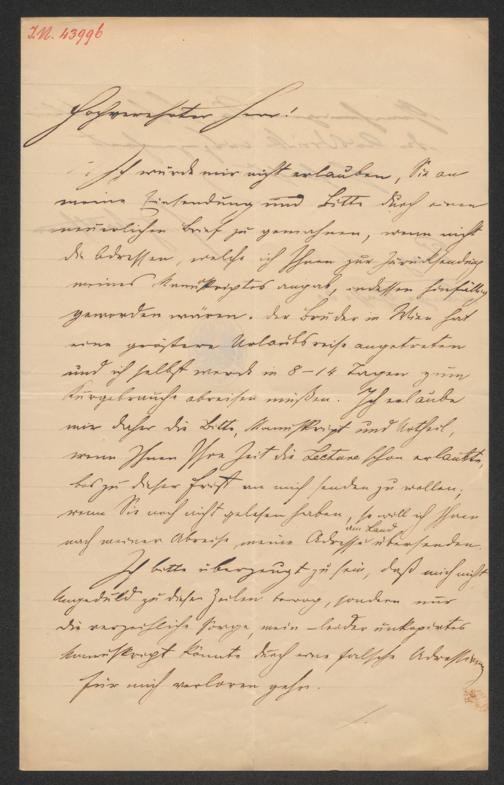 I.N. 43996
Hochverehrter Herr!
Ich würde mir nicht erlauben, Sie an
meine Einsendung und Bitte durch einen
neuerlichen Brief zu gemahnen, wenn nicht
die Adressen, welche ich Ihnen zur Zurücksendung
meines Manuskriptes angab, indessen hinfällig
geworden wären. Der Bruder in Wien hat
eine größere Urlaubsreise angetreten
und ich selbst werde in 8–14 Tagen zum
Kurgebrauche abreisen müßen. Ich erlaube
mir daher die Bitte, Manuskript und Urtheil,
wenn Ihnen Ihre Zeit die Lecture schon erlaubte,
bis zu dieser Frist an mich senden zu wollen;
wenn Sie noch nicht gelesen haben, so will ich Ihnen
am Land
nach meiner Abreise, meine Adresse übersenden.
Ich bitte überzeugt zu sein, daß mich nicht
Ungeduld zu diesen Zeilen bewog, sondern nur
die verzeihliche Sorge, mein – leider unkopirtes
Manuskript könnte durch eine falsche Adressirung
für mich verloren gehn.